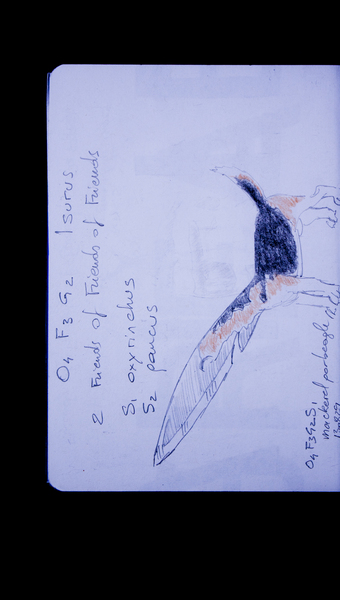 O4 F3 G2 Isurus
2 Friends of Friends of Friends
S1 oxyrinchus
S2 paucus
O4 F3 G2 S1
mackerel porbeagle